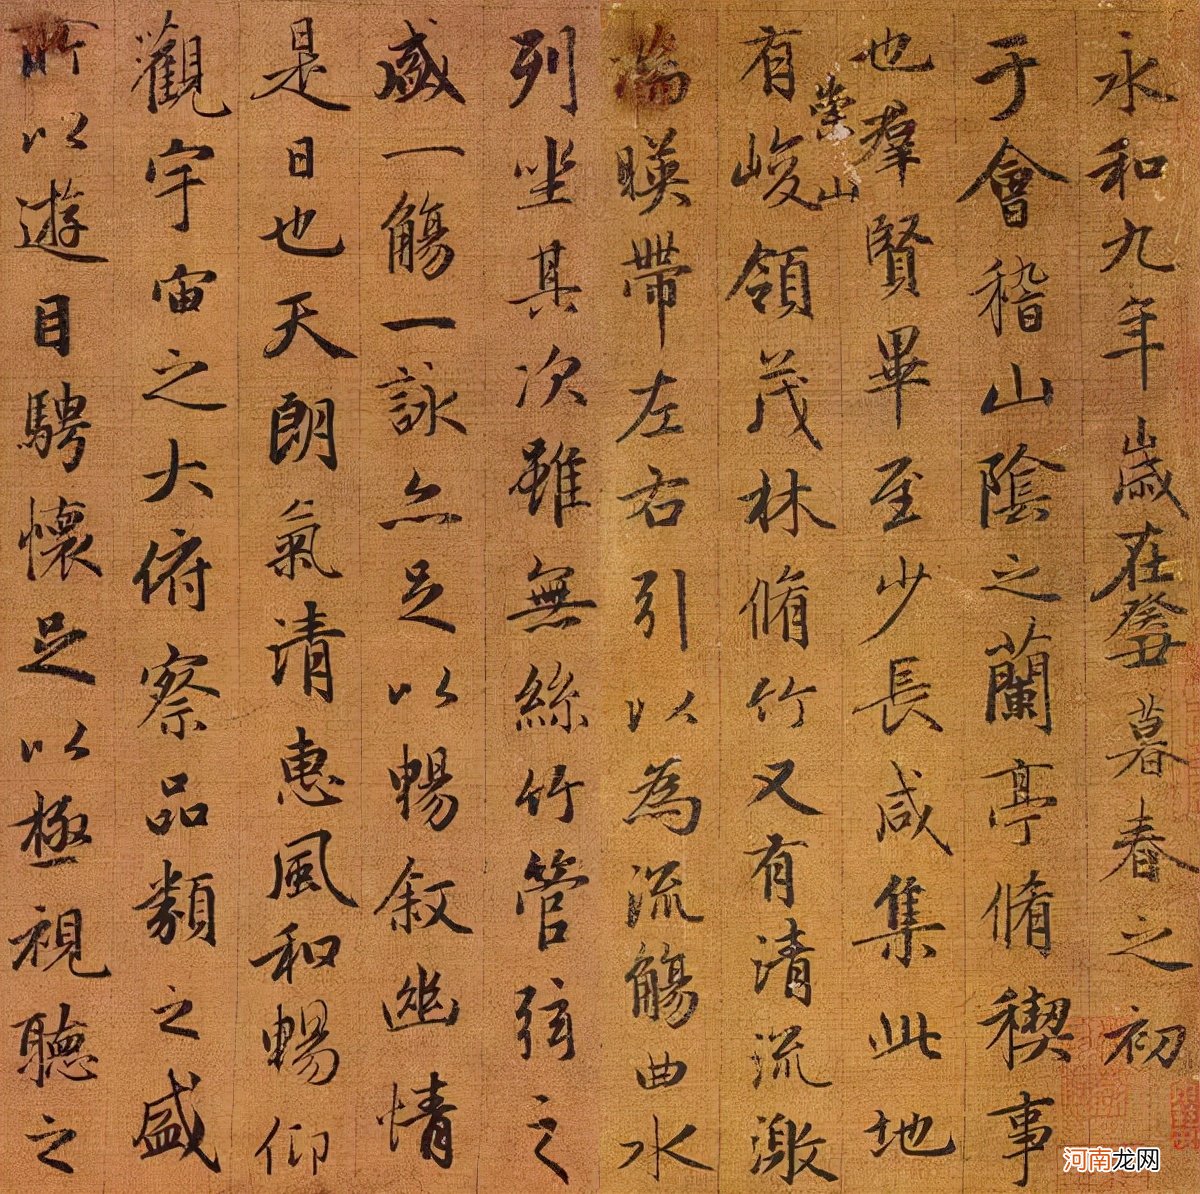 永和九年歲在癸丑暮春之初
于會稽山陰之蘭亭脩稧事
也羣賢畢至少長咸集此地
崇山
有峻領茂林脩竹又有清流激
湍暎帶左右引以為流觴曲水
列坐其次雖無絲竹管弦之
盛一觴一詠亦足以暢敘幽情
是日也天朗氣清惠風和暢仰
觀宇宙之大俯察品類之盛
所以遊目騁懷足以極視聽之
河南龙网